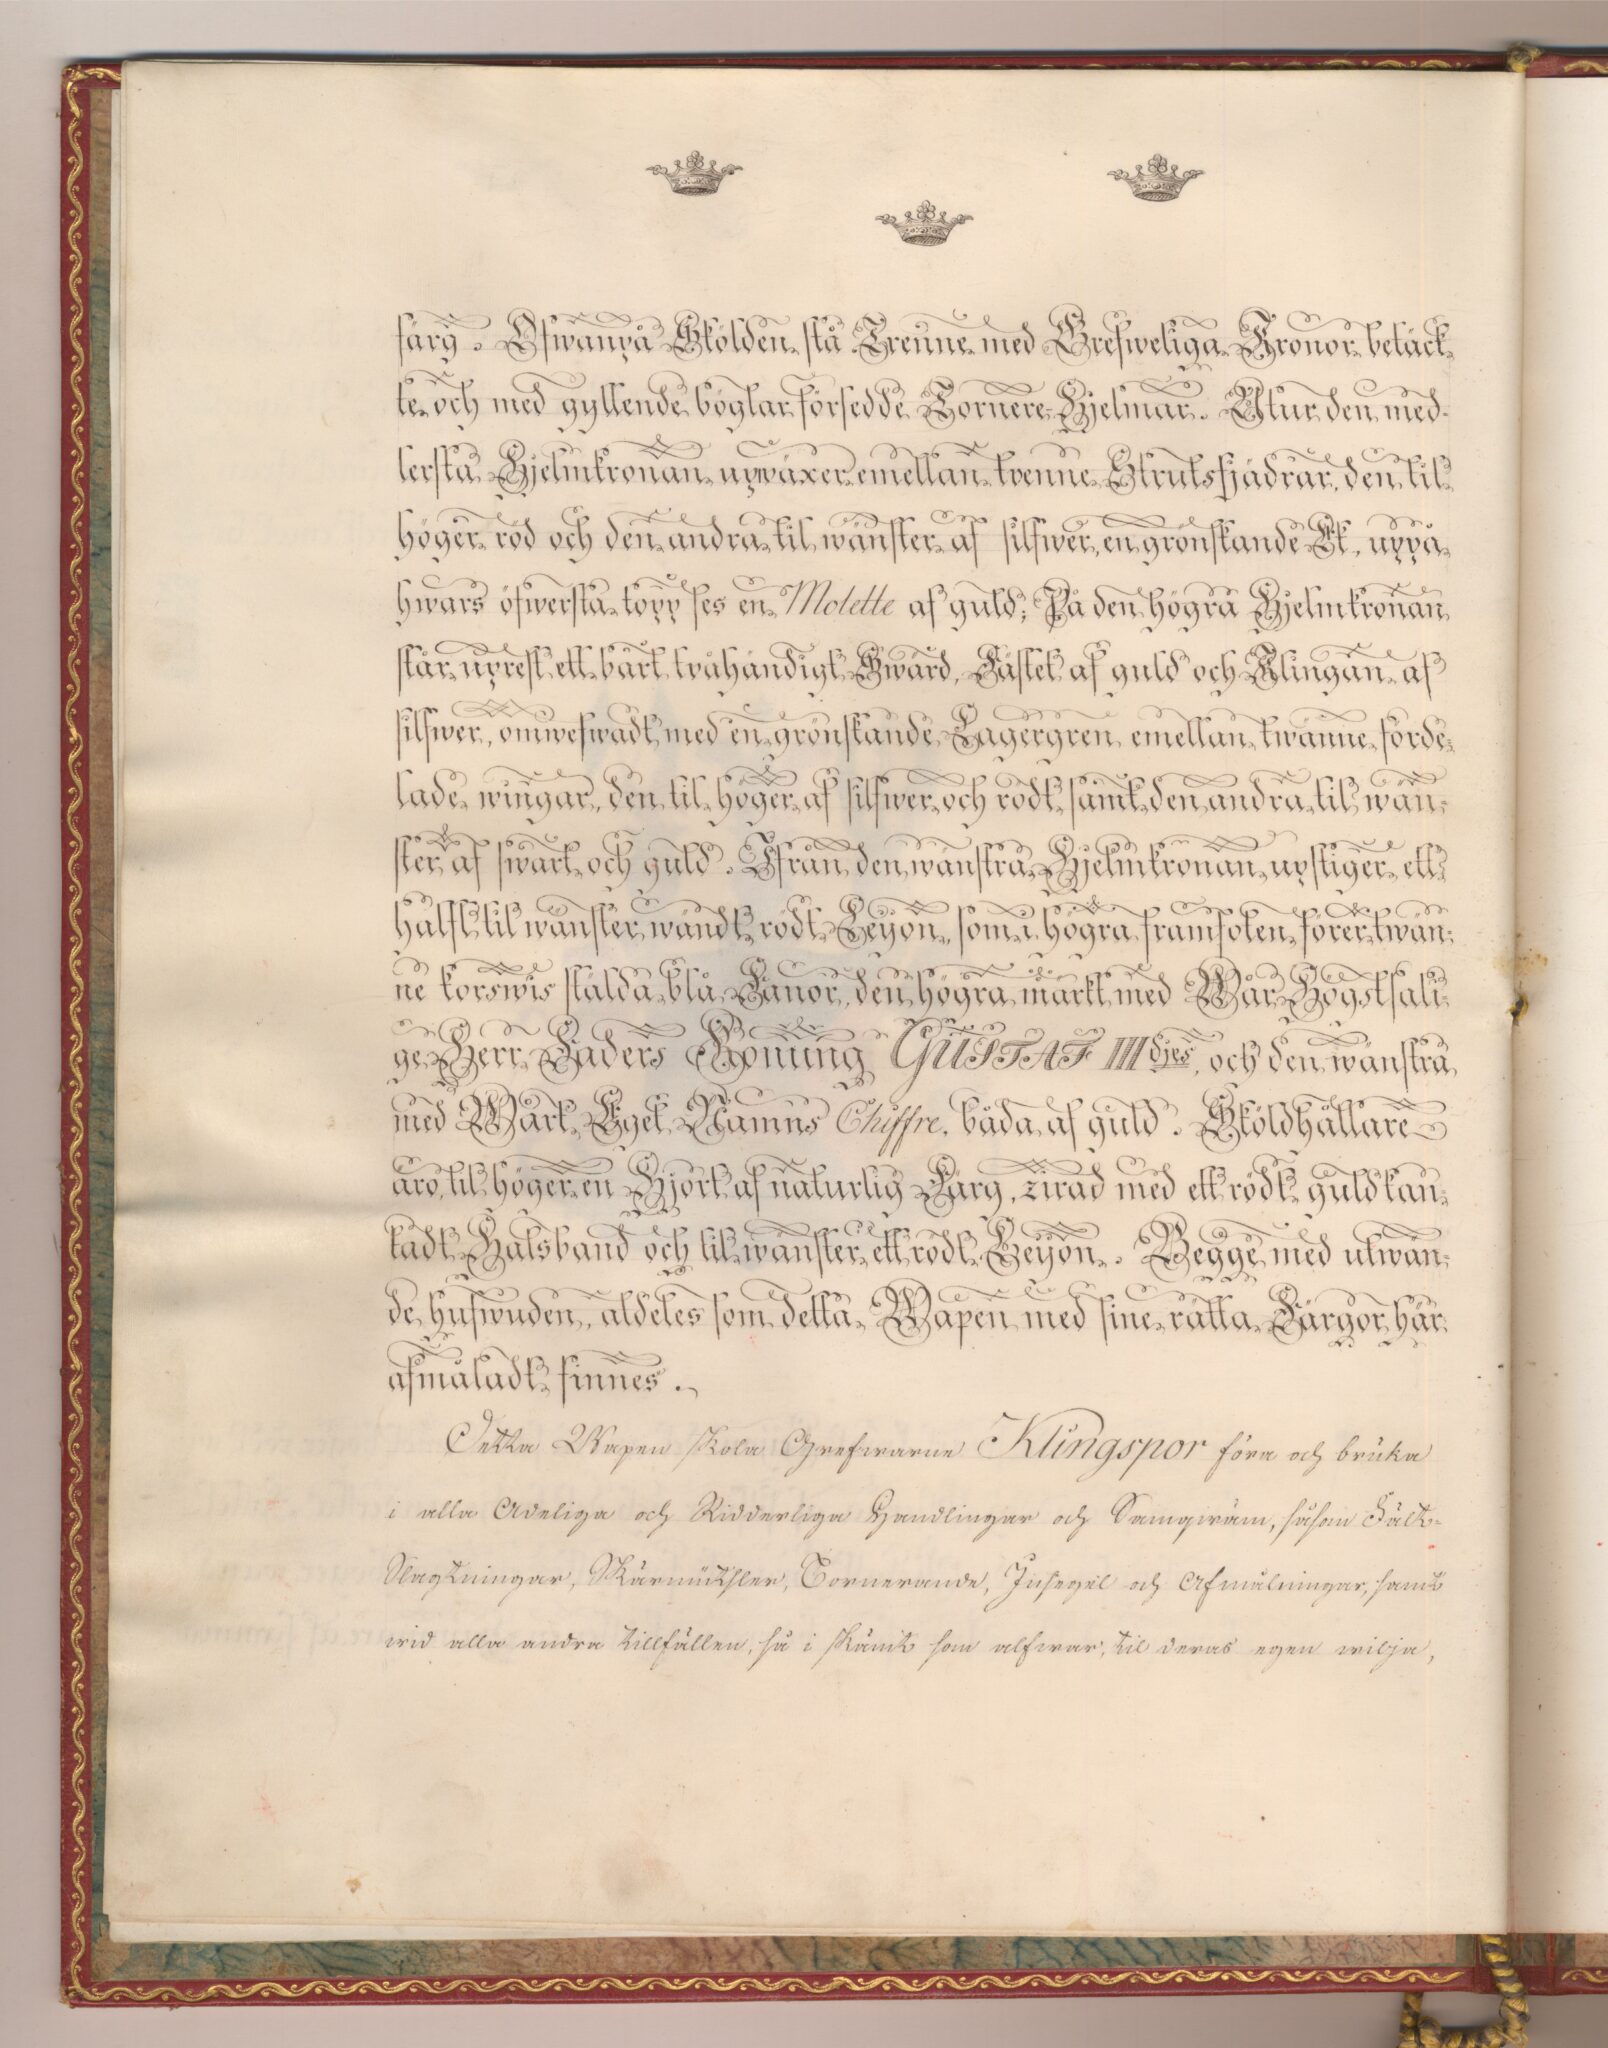 färg. Ofwanpå Skölden stå Trenne med Grefweliga Kronor betäck-
te och med gyllende böglar försedde Tornere-Hjelmar. Utur den med-
lersta Hjelmkronan upwäxer emellan tvenne Strutsfjädrar, den til
höger röd och den andra til wänster af silfwer, en grönskande Ek, uppå
hwars öfwersta topp ses en Molette af guld; På den högra Hjelmkronan
står uprest ett bart tvåhändigt Swärd, Fästet af guld och Klingan af
silfwer, omwefwadt med en grönskande Lagergren emellan twänne förde-
lade wingar, den til höger af silfwer och rödt samt den andra til wän-
ster af swart och guld. Ifrån den wänstra Hjelmkronan upstiger ett
halft til wänster wändt rödt Leijon, som i högra framfoten förer twän-
ne korswis stälda blå Fanor, den högra märkt med Wår Högstsali-
ge Herr Faders Konung GUSTAF III djes, och den wänstra
med Wårt Eget Namns Chiffre, båda af guld. Sköldhållare
äro til höger en Hjort af naturlig Färg, zirad med ett rödt guldkan-
tadt Halsband och til wänster ett rödt Leijon. Begge med utwän-
de hufwuden, aldeles som detta Wapen med sine rätta Färgor här
afmåladt finnes.
Detta Wapen skola Grefwarne Klingspor föra och bruka
i alla Adeliga och Ridderliga Handlingar och Samqwäm, såsom Fält-
Slagtningar, Skärmützler, Tornerande, Insegel och Afmålningar, samt
wid alla andra tillfällen, så i skämt som alfwar, til deras egen wilja,